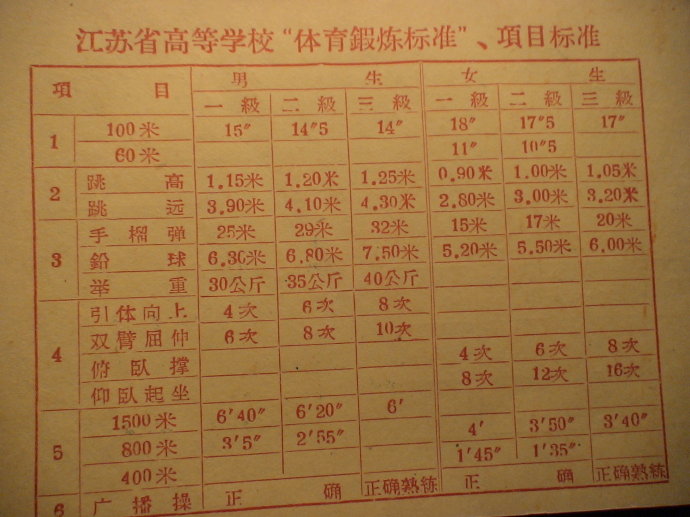 江苏省高等学校“体育鍛炼标准”、項目标准
項目 男生 女生
一級 二級 三級 一級 二級 三級
1 100米 15″ 14″5 14″ 18″ 17″5 17″
60米 11″ 10″5
2 跳高 1.15米 1.20米 1.25米 0.90米 1.00米 1.05米
跳远 3.90米 4.10米 4.30米 2.80米 3.00米 3.20米
3 手榴弹 25米 29米 32米 15米 17米 20米
鉛球 6.30米 6.80米 7.50米 5.20米 5.50米 6.00米
举重 30公斤 35公斤 40公斤
4 引体向上 4次 6次 8次
双臂屈伸 6次 8次 10次
俯臥撑 4次 6次 8次
仰臥起坐 8次 12次 16次
5 1500米 6′40″ 6′20″ 6′
800米 3′5″ 2′55″ 4′ 3′50″ 3′40″
400米 1′45″ 1′35″
6 广播操 正确 正确熟练 正确 正确熟练